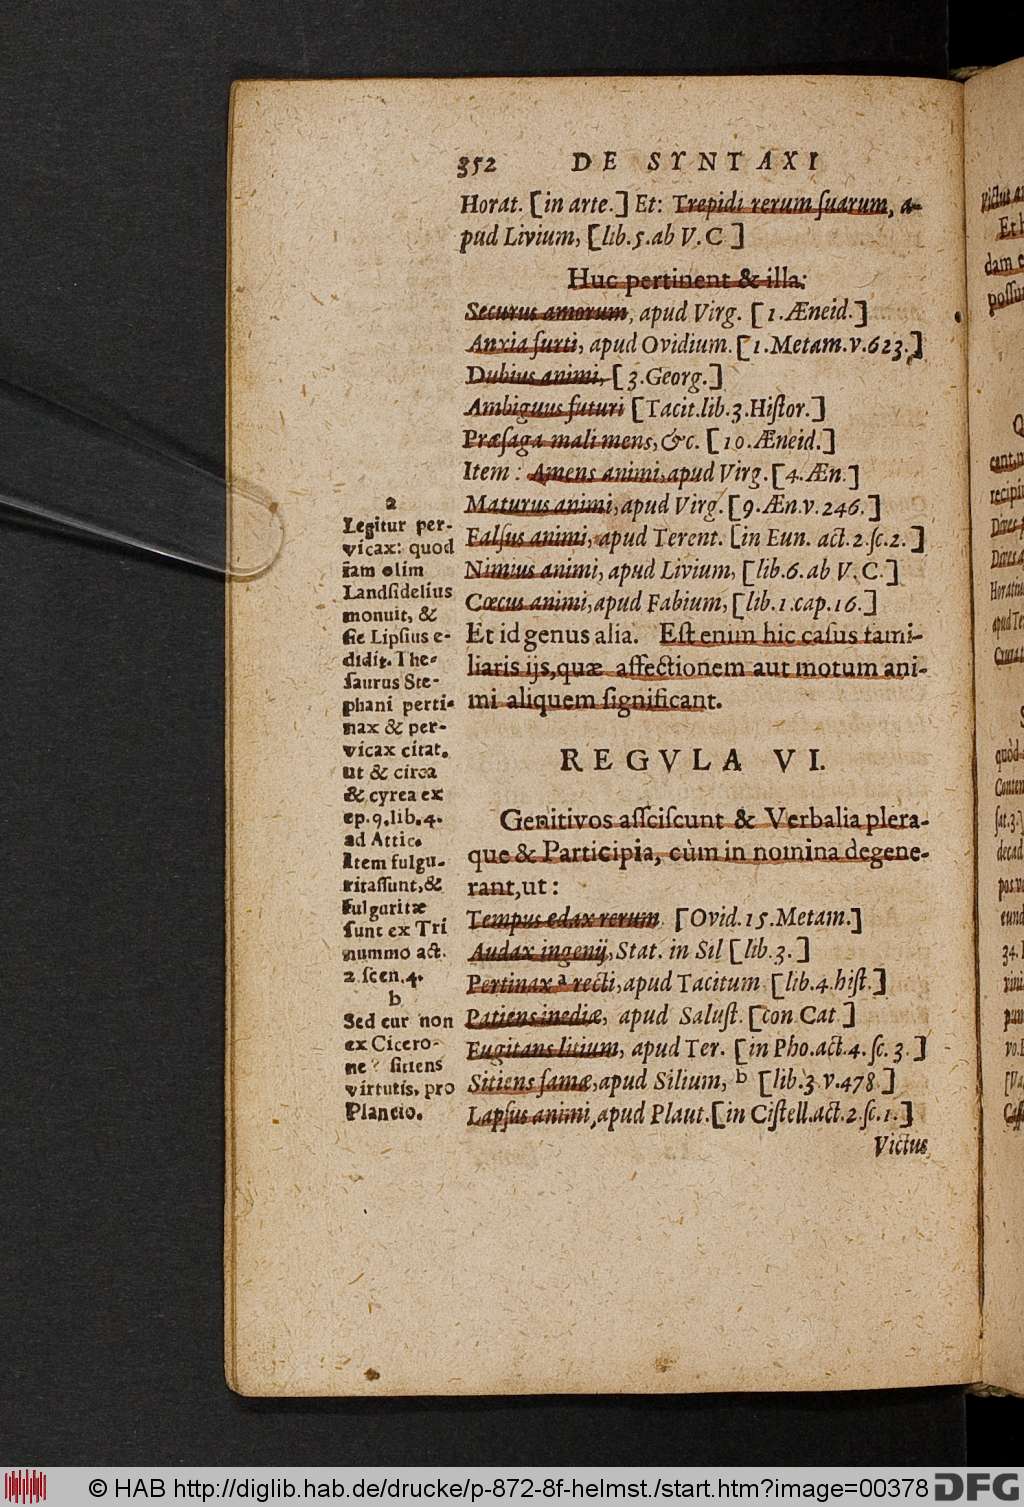 352 DE SYNTAXI
Horat. [in arte.] Et: Trepidi rerum ſuarum, a-
pud Livium, [lib.5.ab V.C ]
Huc pertinent & illa:
Securus amorum, apud Virg. [1.Æneid.]
Anxia furti, apud Ovidium. [1.Metam.v.623.]
Dubius animi, [3.Georg.]
Ambiguus futuri [Tacit.lib.3.Hiſtor.]
Præſaga mali mens, &c. [10.Æneid.]
Item: Amens animi, apud Virg. [4.Æn.]
Maturus animi, apud Virg. [9.Æn.v.246.]
Falſus animi, apud Terent. [in Eun. act.2.ſc.2.]
Nimius animi, apud Livium, [lib.6.ab V.C.]
Cœcus animi, apud Fabium, [lib.1.cap.16.]
Et id genus alia. Eſt enim hic caſus fami-
liaris ijs, quæ affectionem aut motum ani-
mi aliquem ſignificant.
REGVLA VI.
Genitivos aſſciſcunt & Verbalia plera-
que & Participia, cùm in nomina degene-
rant, ut:
Tempus edax rerum [Ovid.15.Metam.]
Audax ingenij, Stat. in Sil [lib.3.]
Pertinax a recti, apud Tacitum [lib.4.hiſt.]
Patiens inediæ, apud Saluſt. [con Cat ]
Fugitans litium, apud Ter. [in Pho.act.4.ſc.3.]
Sitiens famæ, apud Silium, b [lib.3 v.478.]
Lapſus animi, apud Plaut. [in Ciſtell.act.2.ſc.1.]
Victus
a
Legitur per-
vicax: quod
iam olim
Landſidelius
monuit, &
ſic Lipſius e-
didit. The-
ſaurus Ste-
phani perti-
nax & per-
vicax citat.
ut & circa
& cyrea ex
ep.9.lib.4.
ad Attic.
Item fulgu-
ritaſſunt, &
fulguritæ
ſunt ex Tri
nummo act.
2 ſcen.4.
b
Sed cur non
ex Cicero-
ne? ſitiens
virtutis, pro
Plancio.
© HAB http://diglib.hab.de/drucke/p-872-8f-helmst./start.htm?image=00378
DFG